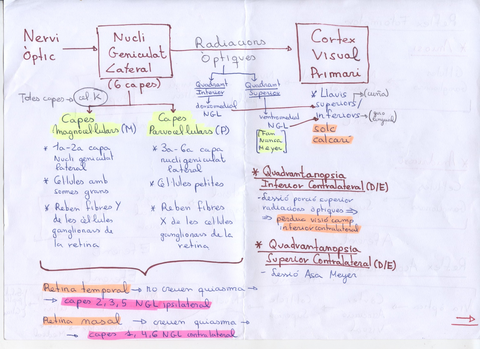 Nervi
Òptic
Nucli
Geniculat
Lateral
(6 capes)
Radiacions
Òptiques
Cortex
Visual
Primari
Quadrant
Inferior
Quadrant
Superior
dorsomedial
NGL
ventromedial
NGL
Fan
Nansa
Meyer
* Llavis → (cuña)
superiors/
inferiors → (giro
lingual)
solc
calcari
Totes capes → cèl K
Capes
Magnocel·lulars (M)
* 1a-2a capa
Nucli geniculat
lateral
* Cèl·lules amb
somes grans
* Reben fibres Y
de les cèl·lules
ganglionars de
la retina
Capes
Parvocel·lulars (P)
* 3a-6a capa
nucli geniculat
lateral
* Cèl·lules petites
* Reben fibres
X de les cèl·lules
ganglionars de la
retina
* Quadrantanopsia
Inferior Contralateral (D/E)
- Lessió porció superior
radiacions òptiques ⇒
⇒ pèrdua visió camp
inferior contralateral
* Quadrantanopsia
Superior Contralateral (D/E)
- Lessió Asa Meyer
Retina temporal → no creuen quiasma →
→ capes 2, 3, 5 NGL ipsilateral
Retina nasal → creuen quiasma →
→ capes 1, 4, 6 NGL contralateral